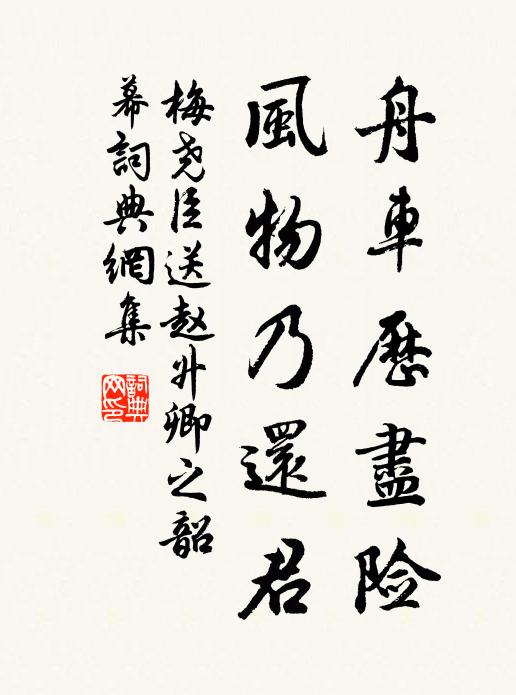 舟車歷盡险
風物乃還君
梅尧臣送赵升卿之韶
幕詞典網集
詞典网印